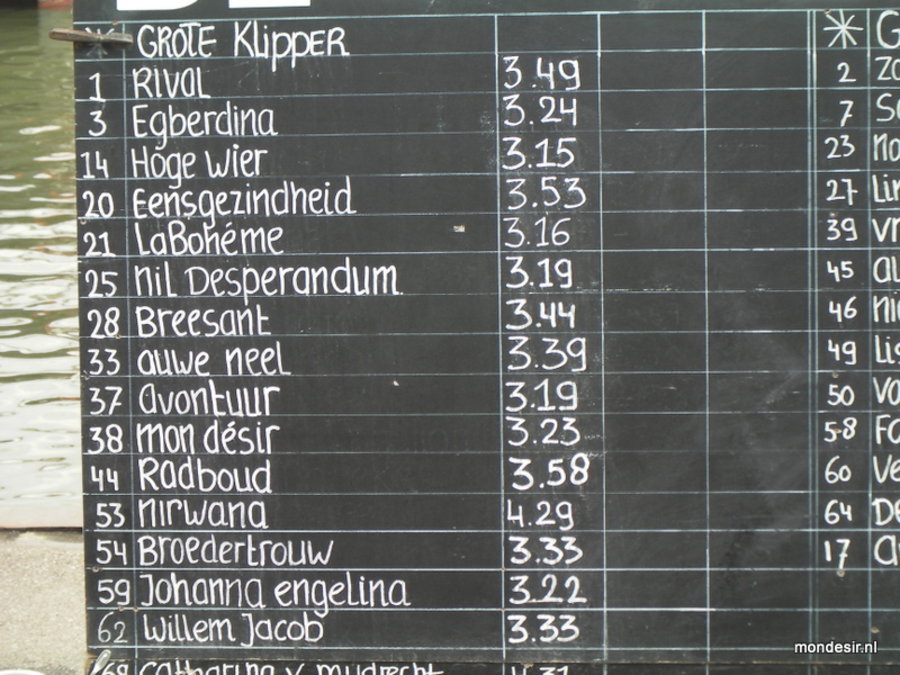 * GROTE Klipper
1 RIVAL 3.49
3 Egberdina 3.24
14 Hoge wier 3.15
20 Eensgezindheid 3.53
21 LaBohéme 3.16
25 nil Desperandum 3.19
28 Breesant 3.44
33 auwe neel 3.39
37 avontuur 3.19
38 mon désir 3.23
44 Radboud 3.58
53 nirwana 4.29
54 Broedertrouw 3.33
59 Johanna engelina 3.22
62 Willem Jacob 3.33
* G
2
7
23
27
39
45
46
49
50
58
60
64
17
mondesir.nl